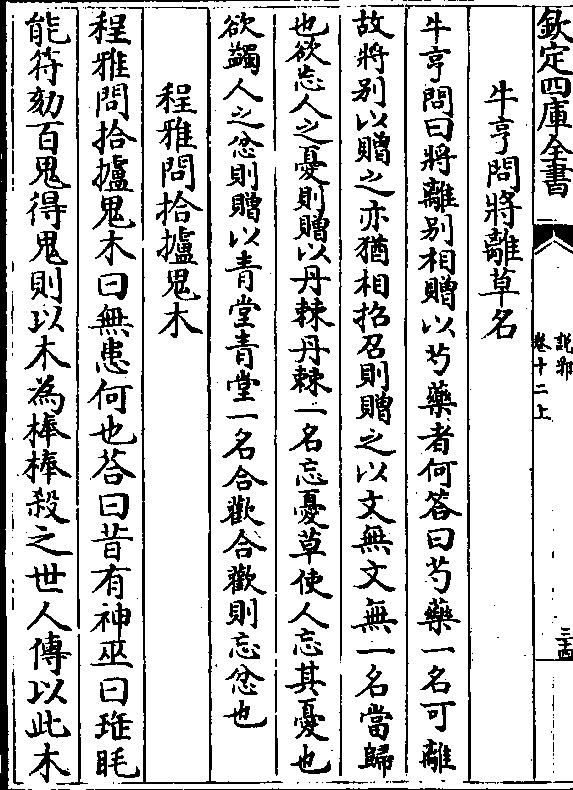 欽定四庫全書
說郛
卷十二上
三十四
牛亨問將離草名
牛亨問曰將離別相贈以芍藥者何答曰芍藥一名可離
故將别以贈之亦猶相招召則贈之以文無文無一名當歸
也欲忘人之憂則贈以丹棘丹棘一名忘憂草使人忘其憂也
欲蠲人之忿則贈以青堂青堂一名合歡合歡則忘忿也
程雅問拾攎鬼木
程雅問拾攎鬼木曰無患何也荅曰昔有神巫曰㻌眊
能符劾百鬼得鬼則以木為棒棒殺之世人傳以此木